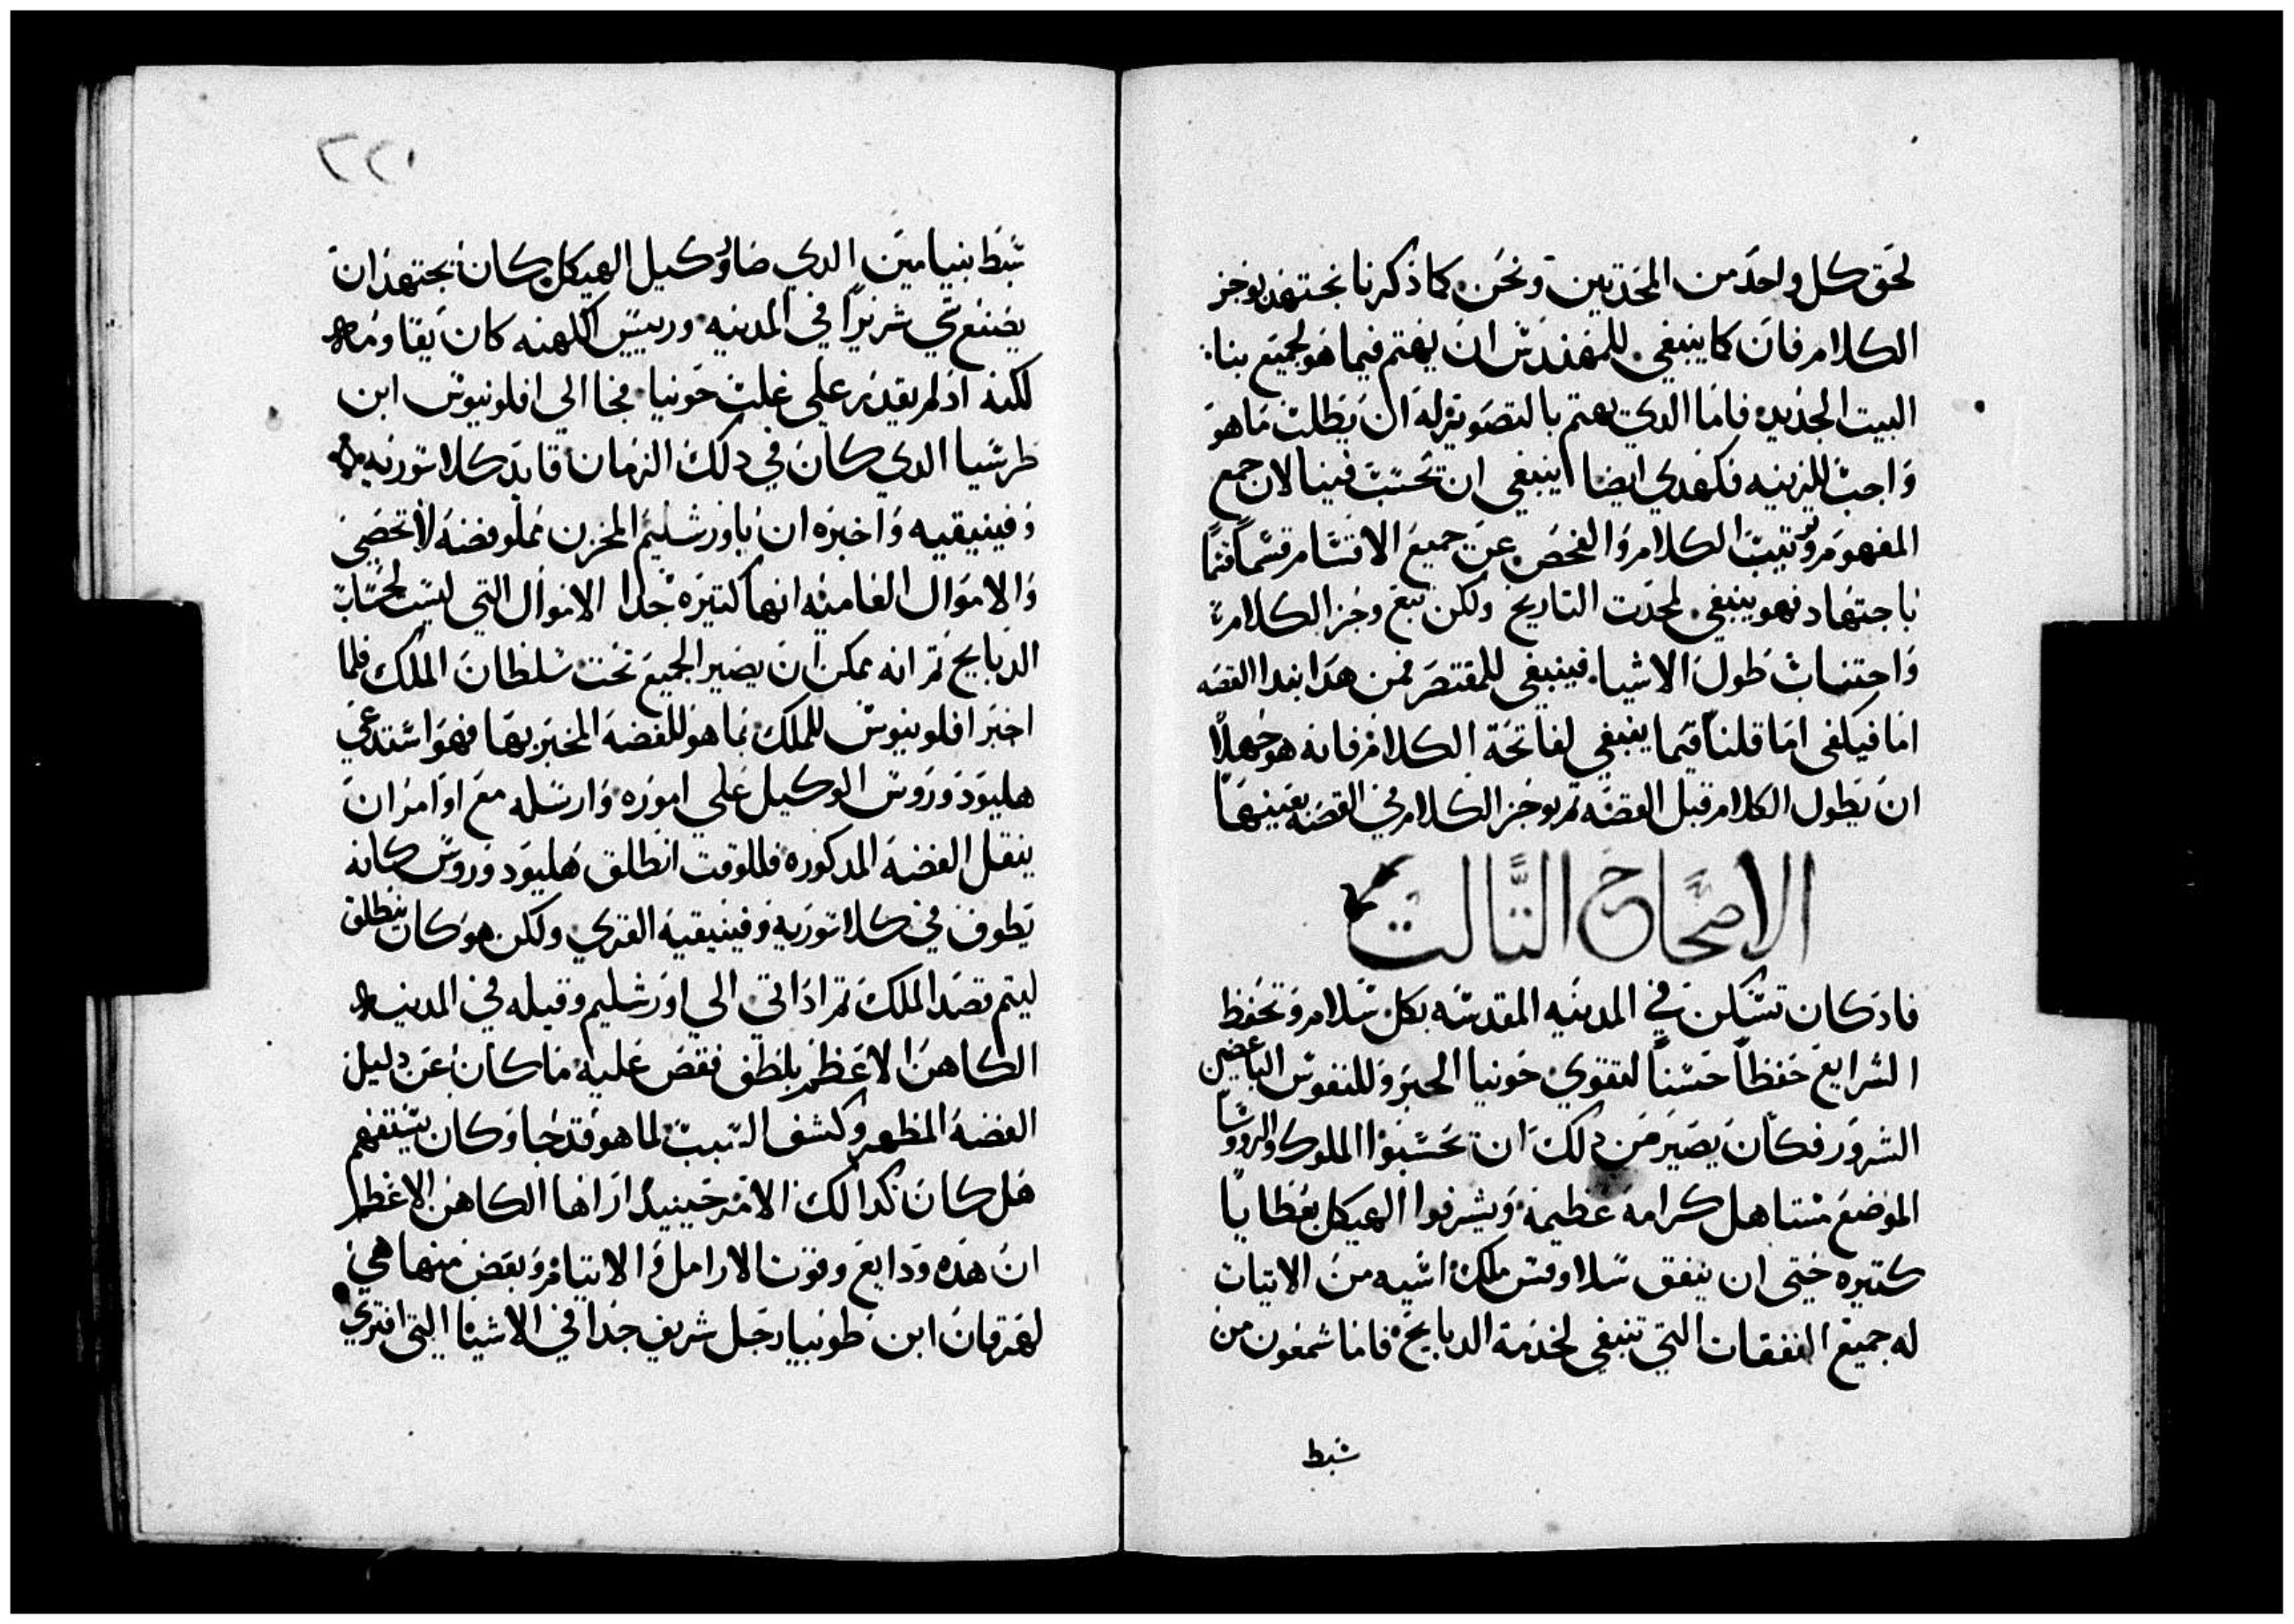 لحق كل واحد من المحدتين ونحن كما ذكرنا نجتهد بوجز
الكلام فان كما ينبغي للمهندس ان يهتم فيما هو لجميع بنا
البيت الجديد فاما الدي يهتم بالتصوير له ان يطلب ما هو
واجب للزينه فكهدي ايضا ينبغي ان تحسب فينا لان جمع
المفهوم وترتيب الكلام والفحص عن جميع الاقسام قسما قسما
باجتهاد فهو ينبغي لمحدت التاريخ ولكن تبع وجز الكلام
واجتناب طول الاشيا فينبغي للمقتصر فمن هدا نبدا القصه
اما فيكفى اما قلنا فيما ينبغي لفاتحة الكلام فانه هو جهلا
ان يطول الكلام قبل القصه تم يوجز الكلام في القصه بعينها
الاصحاح التالت
فادكان تسكن في المدينه المقدسه بكل سلام وتحفظ
الشرايع حفظا حسنا لتقوي حونيا الحبر وللنفوس الباغضين
الشرور فكان يصير من دلك ان تحسبوا الملوك والروسا
الموضع مستاهل كرامه عظيمة ويشرفوا الهيكل بعطايا
كتيره حتى ان ينفق سلاوقس ملك اشيه من الاتيات
له جميع النفقات التي تنبغي لخدمة الدبايح فاما شمعون من
شبط
٢٢١
شبط بنيامين الدي صار وكيل الهيكل كان يجتهد ان
يصنع شي شريرا في المدينه ورييس الكهنه كان يقاومه
لكنه اد لم يقدر على غلب حونيا فجا الي افلونيوس ابن
طرشيا الدي كان في دلك الزمان قايد كلاسوريه
وفينيقيه واخبره ان باورشليم المخزن مملو فضه لا تحصي
والاموال العاميه انها كتيره جدا الاموال التي ليست لحساب
الدبايح تم انه يمكن ان يصير الجميع تحت سلطان الملك فلما
اخبر افلونيوس للملك بما هو للفضه المخبر بها فهو استدعي
هليودوروس الوكيل علي اموره وارسله مع اوامر ان
ينقل الفضه المدكوره فللوقت انطلق هليودوروس كانه
يطوف في كلاسوريه وفينيقيه القري ولكن هو كان ينطلق
ليتم قصد الملك تم اد اتي الي اورشليم وقبله في المدينه
الكاهن الاعظم بلطف فقص عليه ما كان عن دليل
الفضه المظهر وكشف السبب لما هو قد جا وكان يستفهم
هل كان كدالك الامر حينيد اراها الكاهن الاعظم
ان هده ودايع وقوت الارامل والايتام وبعض منها هي
لهرقان ابن طوبيا رجل شريف جدا في الاشيا التي افتري